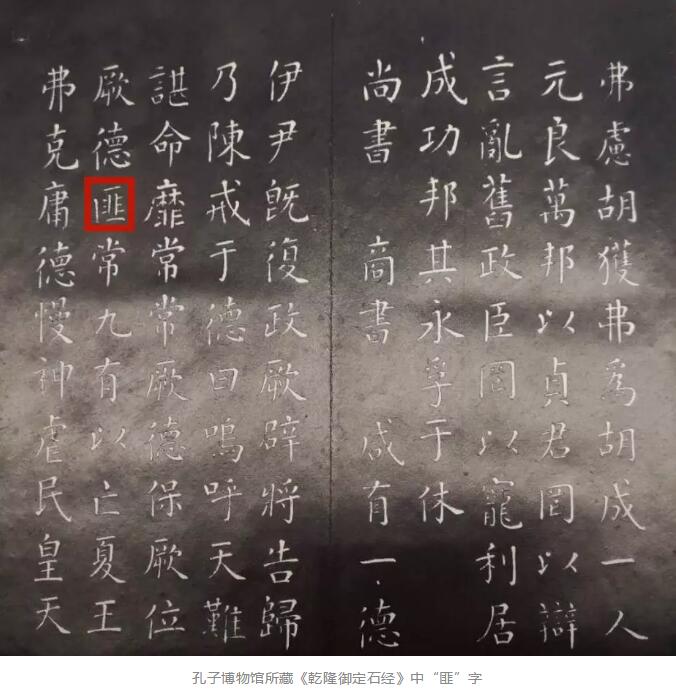 弗慮胡獲弗爲胡成一人
元良萬邦以貞君罔以辯
言亂舊政臣罔以寵利居
成功邦其永孚于休
尚書 商書 咸有一德
伊尹既復政厥辟將告歸
乃陳戒于德曰嗚呼天難
諶命靡常常厥德保厥位
厥德匪常九有以亡夏王
弗克庸德慢神虐民皇天
孔子博物馆所藏《乾隆御定石经》中“匪”字